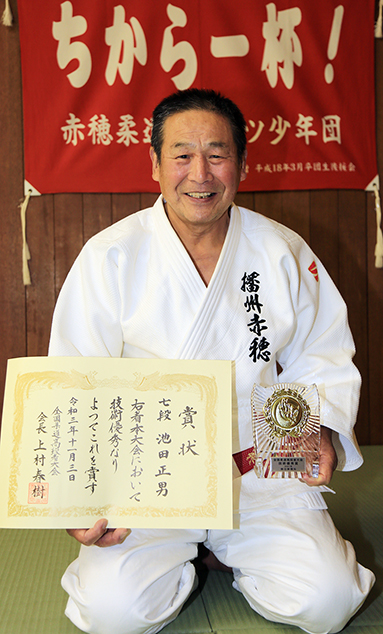 ちから一杯！
赤穂柔道ツ少年団
平成18年3月卒団生後援会
播州赤穂
賞状
七段 池田正男
右者本大会において
技術優秀なり
よってこれを賞す
令和三年十一月三日
全国柔道高段者大会
会長 上村春樹